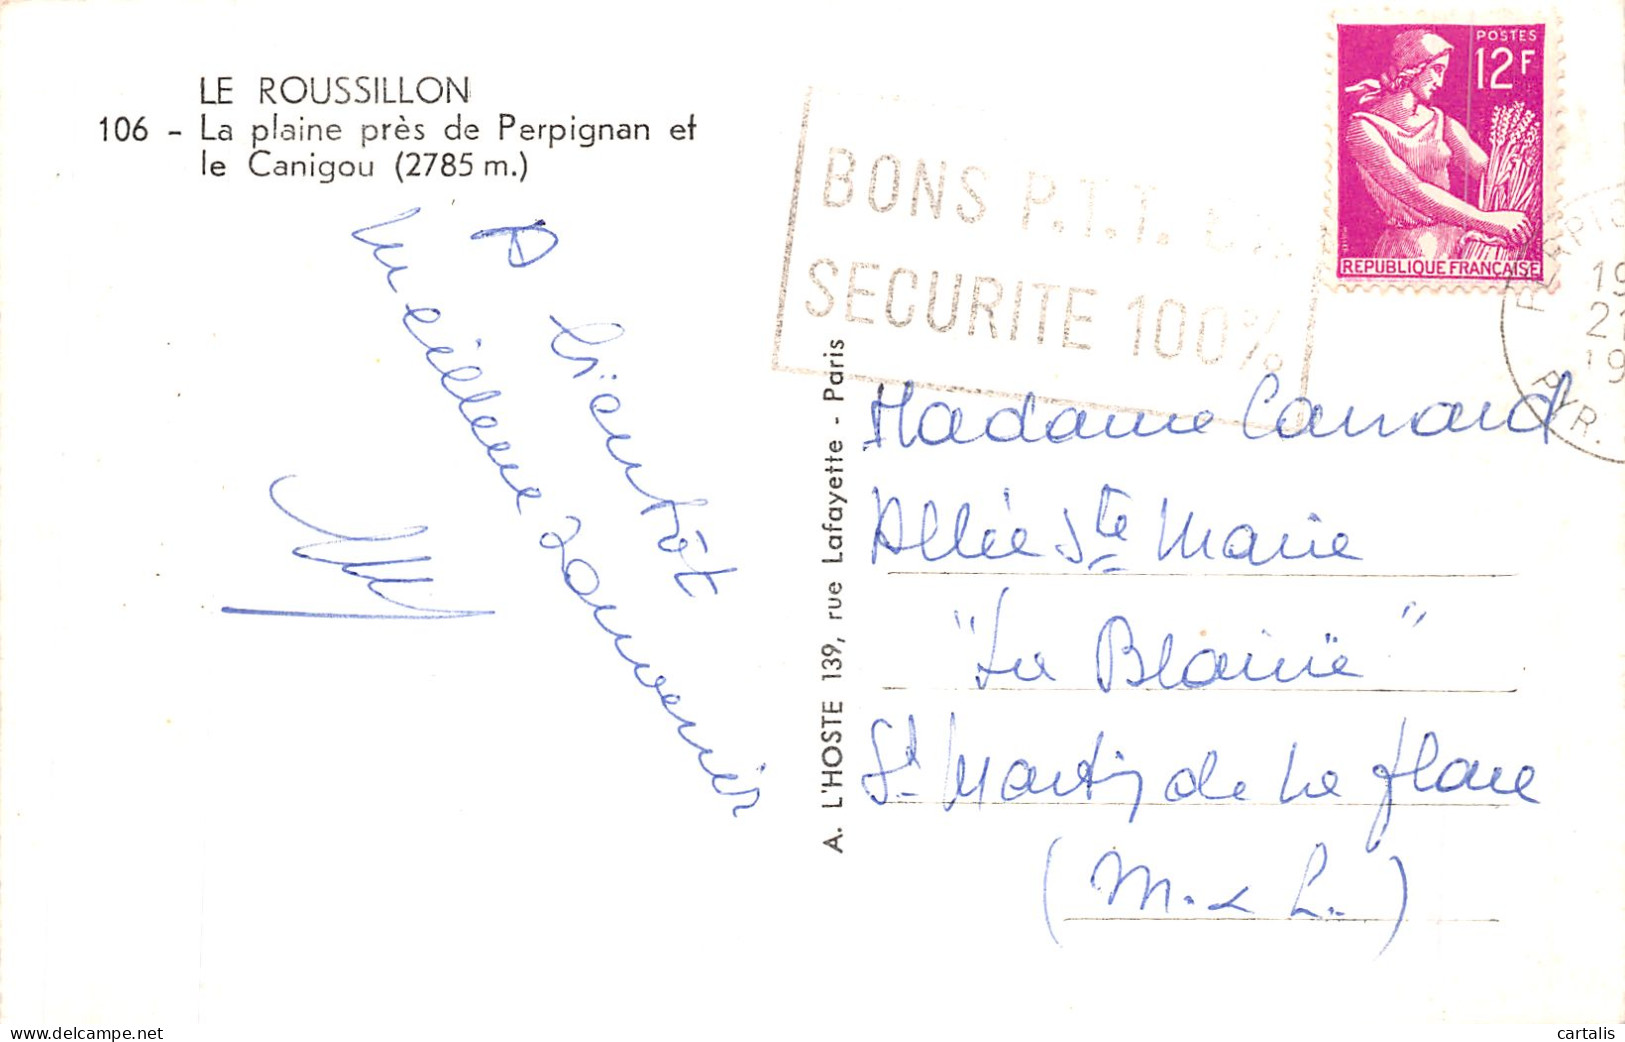 LE ROUSSILLON
106 - La plaine près de Perpignan et
le Canigou (2785 m.)
A bientôt
meilleur souvenir
BONS P.T.T.
SECURITE 100%
POSTES
12F
REPUBLIQUE FRANÇAISE
PERPIG
19
21
19
PYR.
A. L'HOSTE 139, rue Lafayette - Paris
Madame Canard
Allée Ste Marie
"La
St Martin de la Place
(M. & L.)
delcampe.net
cartalis